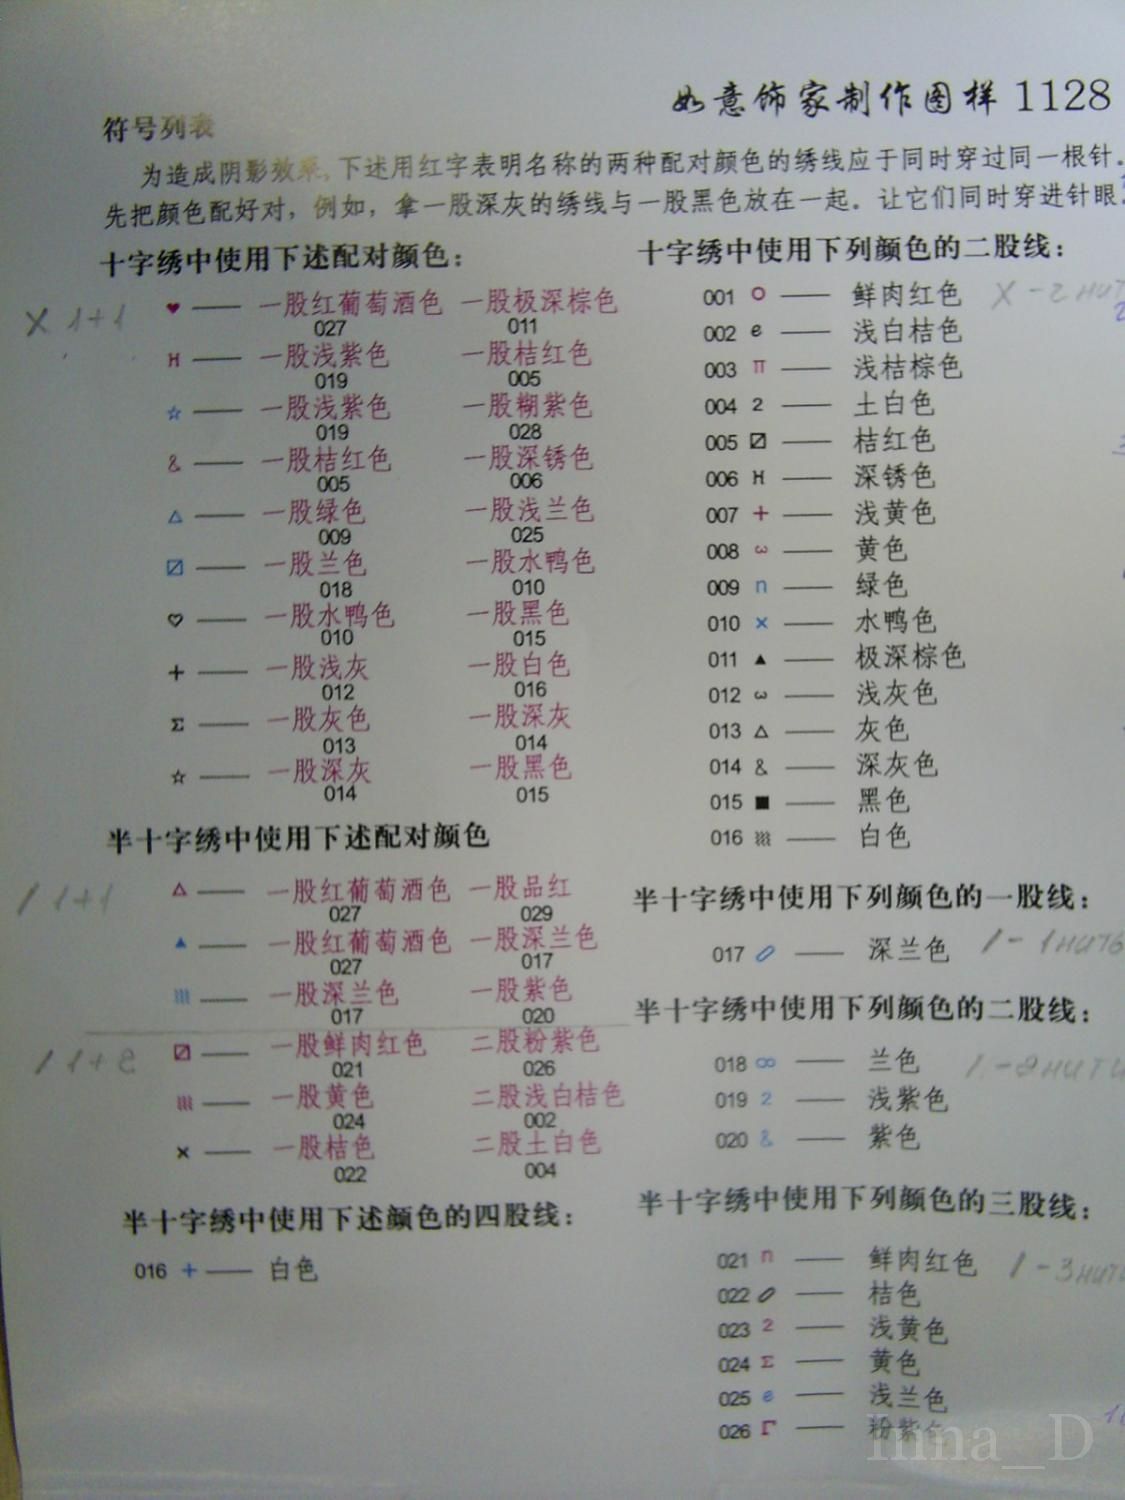 如意饰家制作图样 1128
符号列表
为造成阴影效果, 下述用红字表明名称的两种配对颜色的绣线应于同时穿过同一根针.
先把颜色配好对, 例如, 拿一股深灰的绣线与一股黑色放在一起. 让它们同时穿进针眼.
十字绣中使用下述配对颜色:
X 1+1
♥ —— 一股红葡萄酒色 一股极深棕色
027 011
H —— 一股浅紫色 一股桔红色
019 005
☆ —— 一股浅紫色 一股糊紫色
019 028
& —— 一股桔红色 一股深锈色
005 006
△ —— 一股绿色 一股浅兰色
009 025
⧄ —— 一股兰色 一股水鸭色
018 010
♡ —— 一股水鸭色 一股黑色
010 015
+ —— 一股浅灰 一股白色
012 016
Σ —— 一股灰色 一股深灰
013 014
☆ —— 一股深灰 一股黑色
014 015
半十字绣中使用下述配对颜色
/ 1+1
△ —— 一股红葡萄酒色 一股品红
027 029
▲ —— 一股红葡萄酒色 一股深兰色
027 017
—— 一股深兰色 一股紫色
017 020
/ 1+2
⧄ —— 一股鲜肉红色 二股粉紫色
021 026
—— 一股黄色 二股浅白桔色
024 002
× —— 一股桔色 二股土白色
022 004
半十字绣中使用下述颜色的四股线:
016 + —— 白色
十字绣中使用下列颜色的二股线:
001 O —— 鲜肉红色 X -2 нит
002 e —— 浅白桔色
003 π —— 浅桔棕色
004 2 —— 土白色
005 ⧄ —— 桔红色
006 H —— 深锈色
007 + —— 浅黄色
008 ω —— 黄色
009 n —— 绿色
010 × —— 水鸭色
011 ▲ —— 极深棕色
012 ω —— 浅灰色
013 △ —— 灰色
014 & —— 深灰色
015 ■ —— 黑色
016 —— 白色
半十字绣中使用下列颜色的一股线:
017 —— 深兰色 / - 1 нить
半十字绣中使用下列颜色的二股线:
018 ∞ —— 兰色 / - 2 нити
019 2 —— 浅紫色
020 & —— 紫色
半十字绣中使用下列颜色的三股线:
021 n —— 鲜肉红色 / - 3 нити
022 —— 桔色
023 2 —— 浅黄色
024 Σ —— 黄色
025 e —— 浅兰色
026 Γ —— 粉紫色
Inna_D